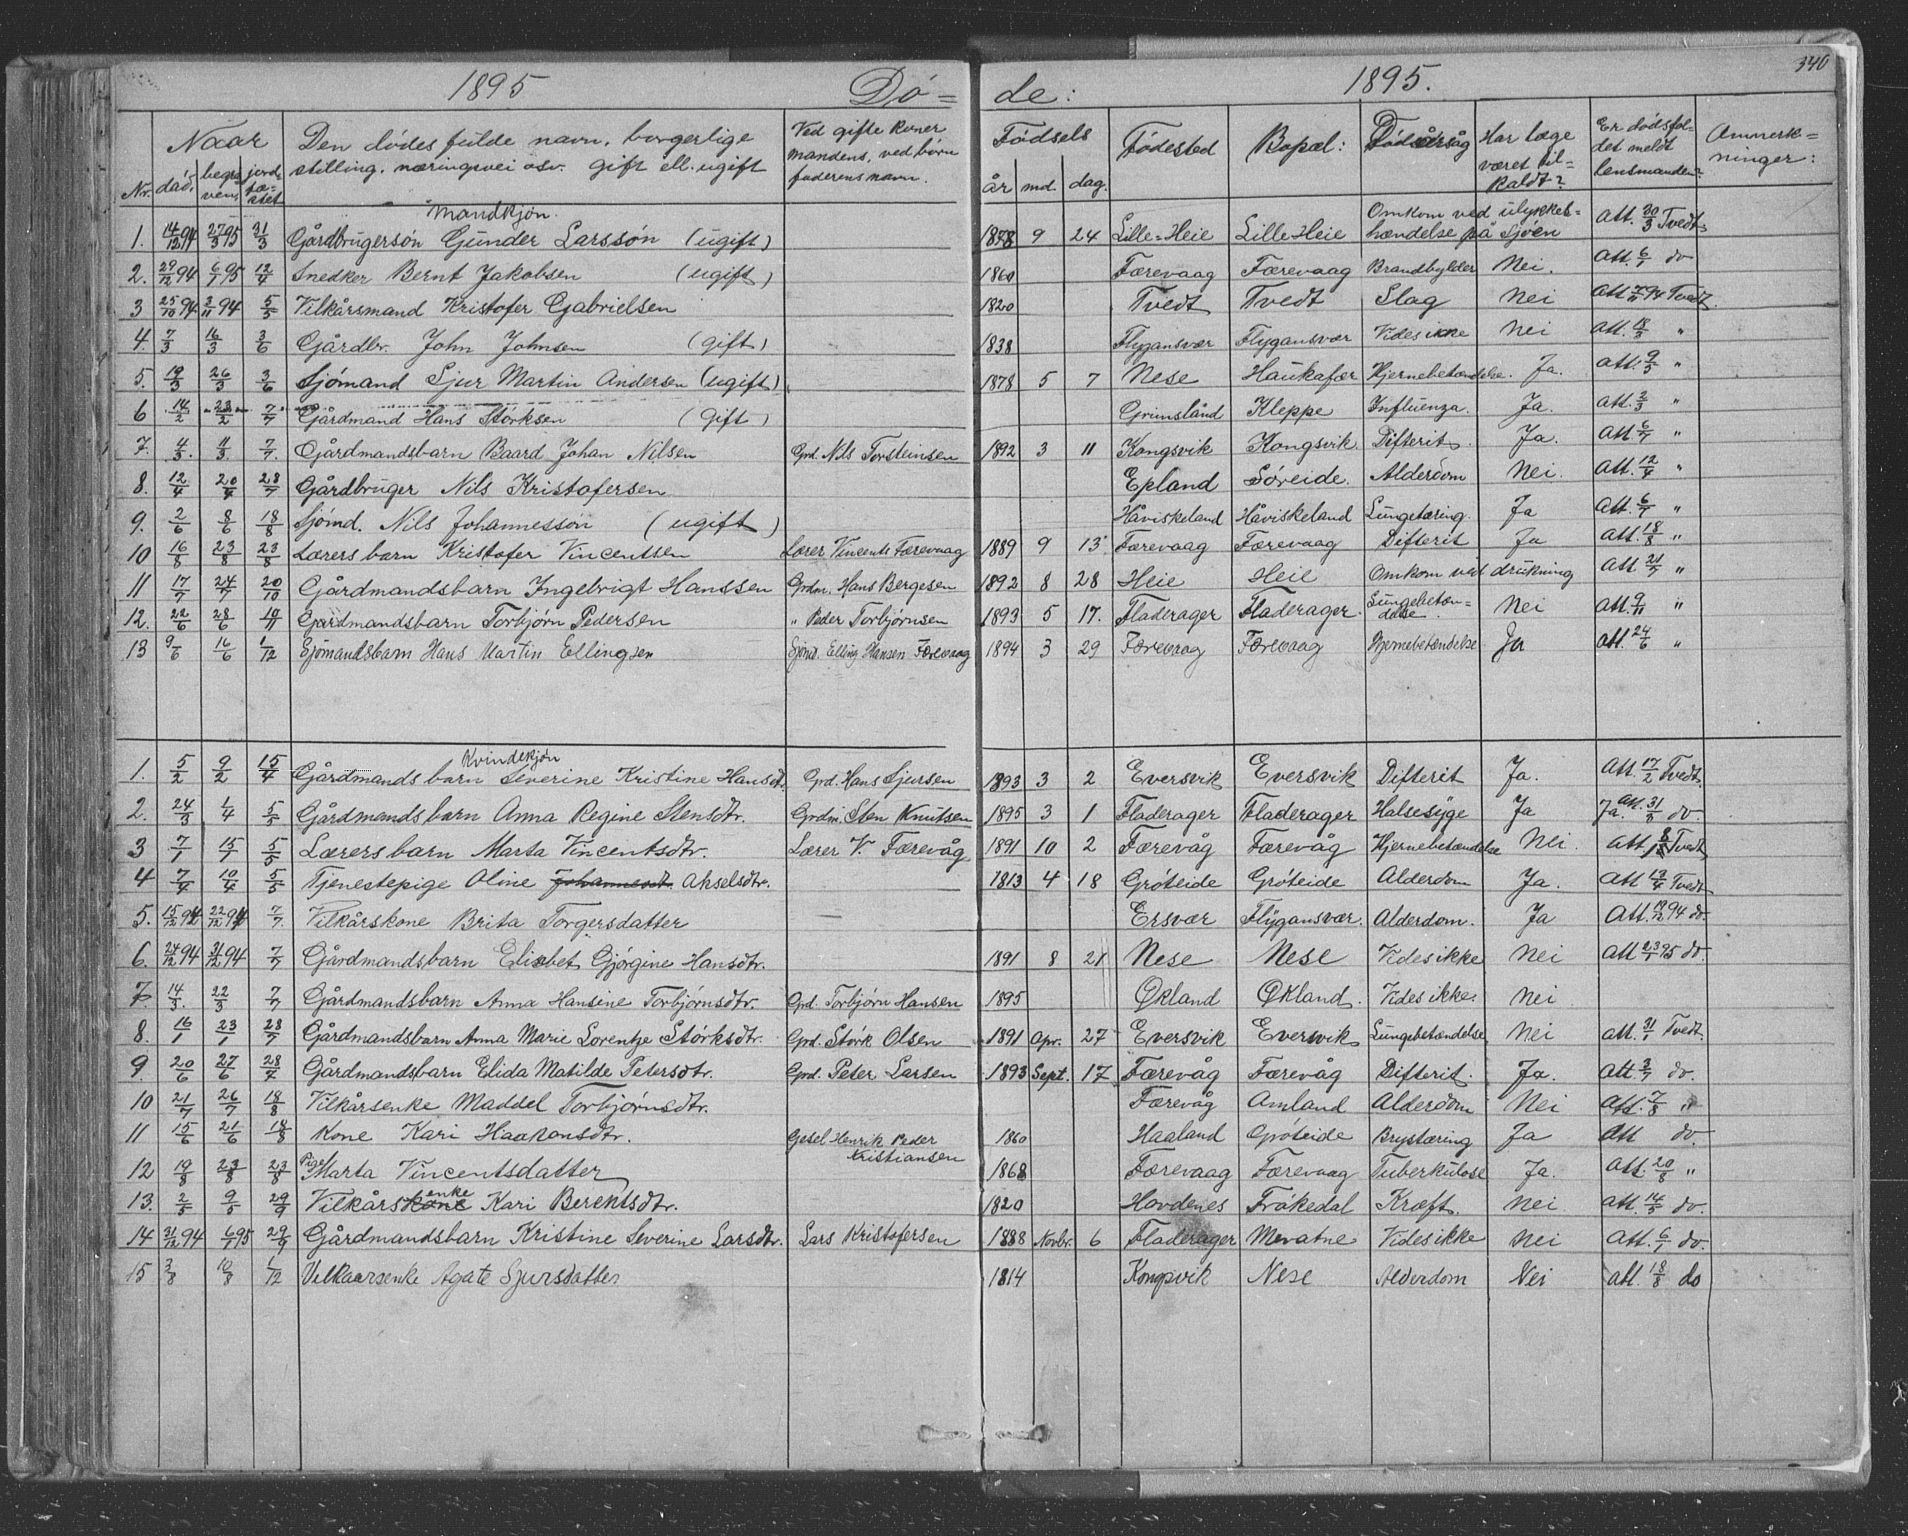 340
1895 Dö= de: 1895.
Nr. Naar död, begra ven, jord fæ= stet Den dödes fulde navn, borgerlige stilling, næringsvei osv. gift ell. ugift Ved gifte koner mandens, ved börn faderens navn. Födsels år md. dag. Födested Bopæl: Dödsårsåg Har læge været til= kaldt? Er dödsfal= det meldt lensmanden? Anmerk= ninger:
Mandkjön.
1. 14/12 94 27/3 95 31/3 Gårdbrugersön Gunder Larssön (ugift) 1878 9 24 Lille=Heie Lille Heie Omkom ved ulykkes= hændelse på Sjöen Att. 30/3 Tvedt
2. 29/12 94 6/1 95 12/4 Snedker Bernt Jakobsen (ugift) 1860 Færevaag Færevaag Brandbylder Nei. Att. 6/1 do
3 25/10 94 2/11 94 5/5 Vilkårsmand Kristofer Gabrielsen 1820 Tvedt Tvedt Slag Nei Att. 7/11 94 Tvedt
4. 7/3 16/3 3/6 Gårdbr. John Johnsen (gift) 1838 Flygansvær Flygansvær Vides ikke Nei Att. 18/3 "
5. 19/3 26/3 3/6 Sjömand Sjur Martin Andersen (ugift) 1878 5 7 Nese Haukafær Hjernebetændelse. Ja. att. 9/5 "
6 14/2 23/2 7/7 Gårdmand Hans Störksen (gift) Grimsland Kleppe Influenza. Ja. att. 2/3 "
7. 4/3. 11/3 7/7 Gårdmandsbarn Baard Johan Nilsen Grd. Nils Torsteinsen 1892 3 11 Kongsvik Kongsvik Difterit. Ja. Att 6/7 "
8. 12/4 20/4 28/7 Gårdbruger Nils Kristofersen Epland Söreide. Alderdom Nei. att. 12/4 "
9. 2/6 8/6 18/8 Sjömd. Nils Johannessön (ugift) Håviskeland Håviskeland Lungetæring. Ja att. 6/7 "
10 16/8 23/8 23/8 Lærers barn Kristofer Vincentsen Lærer Vincents Færevaag 1889 9 13 Færevaag Færevaag Difterit Ja att. 18/8 "
11 17/7 24/7 20/10 Gårdmandsbarn Ingebrigt Hanssen Grdm. Hans Bergesen 1892 8 28 Heie Heie Omkom ved drukning att 21/7 "
12. 22/6 28/6 10/11 Gardmandsbarn Torbjörn Pedersen " Peder Torbjörnsen 1893 5 17. Fladerager Fladerager Lungebetæn= delse. Nei att. 9/11 "
13 9/6 16/6 1/12 Sjömandsbarn Hans Martin Ellingsen Sjömd. Elling Hansen Færevaag 1894 3 29 Færevaag Færevaag Hjernebetændelse Ja att. 24/6 "
Kvindekjön
1. 5/2 9/2 15/4 Gårdmands barn Severine Kristine Hansdt. Grd. Hans Sjursen 1893 3 2 Eversvik Eversvik Difterit Ja. Att. 17/2 Tvedt
2. 24/3 1/4 5/5 Gårdmands barn Anna Regine Stensdtr. Grdm. Sten Knutsen 1895 3 1 Fladerager Fladerager Halsesyge Ja Ja. att. 31/3 do.
3 7/1 15/1 5/5 Lærers barn Marta Vincentsdtr. Lærer V. Færevåg 1891 10 2 Færevåg Færevåg Hjernebetændelse Nei. Att 8/1 Tvedt
4 7/4 10/4 5/5 Tjenestepige Oline Johannesdt. Akselsdtr. 1813 4 18 Gröteide Gröteide Alderdom Ja. att 17/4 Tvedt
5. 15/12 94 22/12 94 7/7 Vilkårskone Brita Torgersdatter Ersvær Flygansvær. Alderdom. Ja Att. 19/12 94 do.
6. 24/12 94 31/12 94 7/7 Gårdmandsbarn Elisbet Gjörgine Hansdtr. 1891 8 21 Nese Nese Vides ikke Nei att 23/1 95 do.
7 14/3. 22/3 7/7 Gårdmandsbarn Anna Hansine Torbjörnsdtr. Grd. Torbjörn Hansen 1895 Økland Økland. Vides ikke. Nei
8. 16/1 23/1 28/7 Gårdmandsbarn Anna Marie Lorentze Störksdtr. Grd. Störk Olsen 1891 Apr. 27 Eversvik Eversvik Lungebetændelse Nei att. 31/1 Tvedt.
9. 20/6 27/6 28/7 Gårdmandsbarn Elida Matilde Petersdtr. Grd. Peter Larsen 1893 Sept. 17 Færevåg Færevåg Difterit. Ja. att. 3/7 do.
10 21/7 26/7 18/8 Vilkårsenke Maddel Torbjörnsdtr. Færevåg Amland Alderdom Nei att. 7/8 "
11 15/6 21/6 18/8 Kone Kari Haakonsdtr. Gesel Henrik Peder Kristiansen 1860 Haaland Gröteide Brystæring Ja att do.
12 19/8 23/8 23/8 Pige Marta Vincentsdatter 1868 Færevaag Færevaag Tuberkulose Ja. att. 20/8 "
13. 2/5 9/5 29/9 Vilkårskone enke Kari Berentsdtr. 1820 Hovdenes Frökedal Kræft. Nei att. 14/5 do.
14 31/12 94 6/1 95 29/9 Gårdmandsbarn Kristine Severine Larsdtr. Lars Kristofersen 1888 Novbr. 6 Fladerager Mevatne Vides ikke Nei att. 6/1 do.
15 3/8 10/8 1/12 Vilkaarsenke Agate Sjursdatter 1814 Kongsvik Nese Alderdom Nei att. 18/8 do